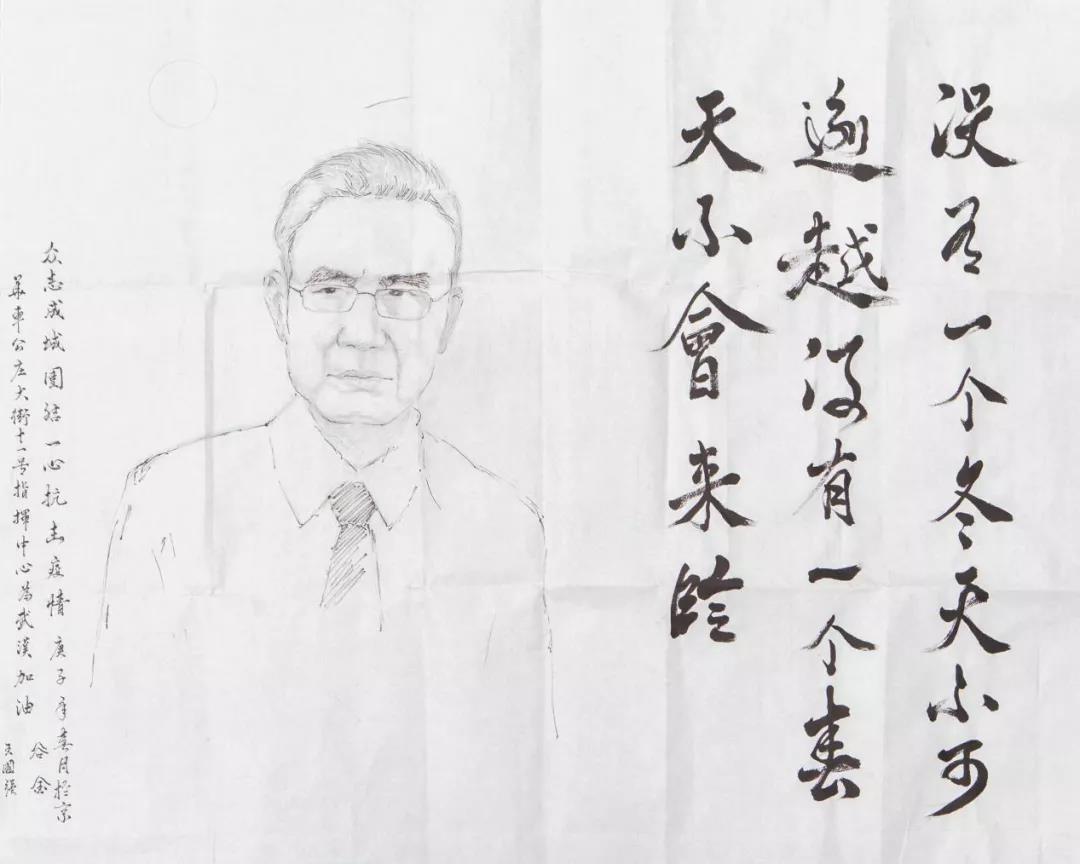 没有一个冬天不可
逾越没有一个春
天不會来臨
众志成城团结一心抗击疫情庚子年春月於京
車公庄大街十一号指揮中心為武漢加油
谷金